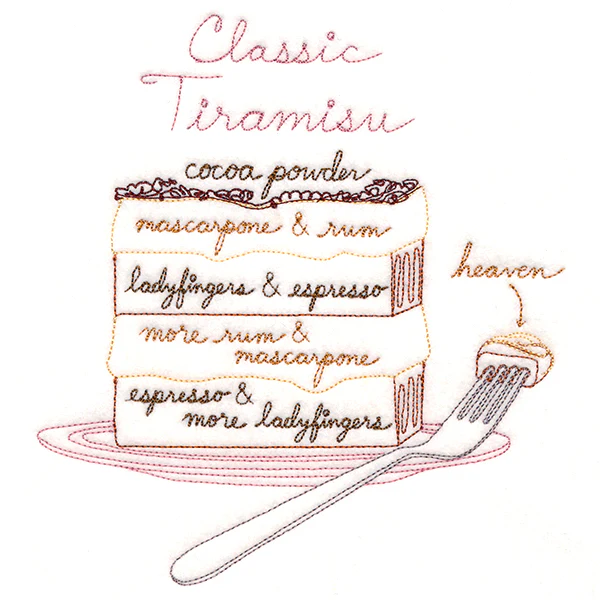 Classic
Tiramisu
cocoa powder
mascarpone & rum
ladyfingers & espresso
heaven
more rum &
mascarpone
espresso &
more ladyfingers